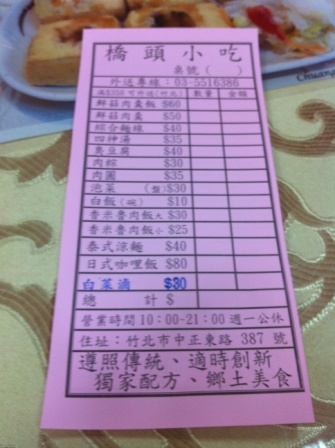 橋頭小吃
桌號( )
外送專線：03-5516386
滿$350 可外送(竹北) 數量 金額
鮮菇肉羹飯 $60
鮮菇肉羹 $50
綜合麵線 $40
四神湯 $35
臭豆腐 $40
肉粽 $30
肉圓 $35
泡菜 (盤)$30
白飯(碗) $10
香米魯肉飯大 $30
香米魯肉飯小 $25
泰式涼麵 $40
日式咖哩飯 $80
白菜滷 $30
總計 $
營業時間10:00-21:00週一公休
住址：竹北市中正東路 387 號
遵照傳統、適時創新
獨家配方、鄉土美食
Chuang